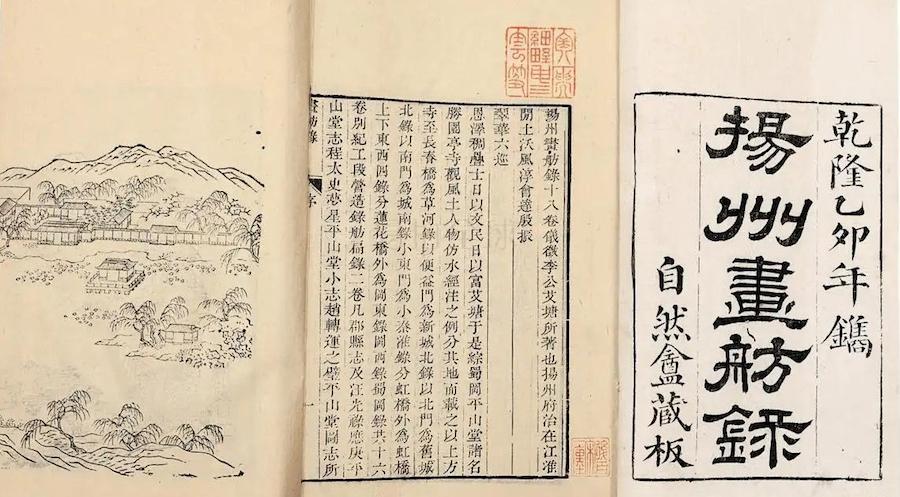 乾隆乙卯年鐫
揚州畫舫錄
自然盦藏板
揚州畫舫錄十八卷儀徵李公艾塘所著也揚州府治在江淮
間土沃風淳會達殷振
翠華六巡
恩澤稠疊士日以文民日以富艾塘于是綜蜀岡平山堂諸名
勝園亭寺觀風土人物仿水經注之例分其地而載之以上方
寺至長春橋為草河錄以便益門為新城北錄以北門為舊城
北錄以南門為城南錄小東門為小秦淮錄分虹橋外為虹橋
上下東西四錄分蓮花橋外為岡東錄岡西錄蜀岡錄共十六
卷別紀工段營造錄舫扁錄二卷凡郡縣志及汪光祿應庚平
山堂志程太史夢星平山堂小志趙轉運之璧平山堂圖所
畫舫錄 序 一